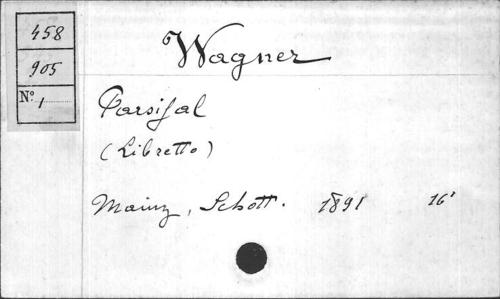 458
905
Nº 1
Wagner
Parsifal
(Libretto)
Mainz, Schott. 1891 16'